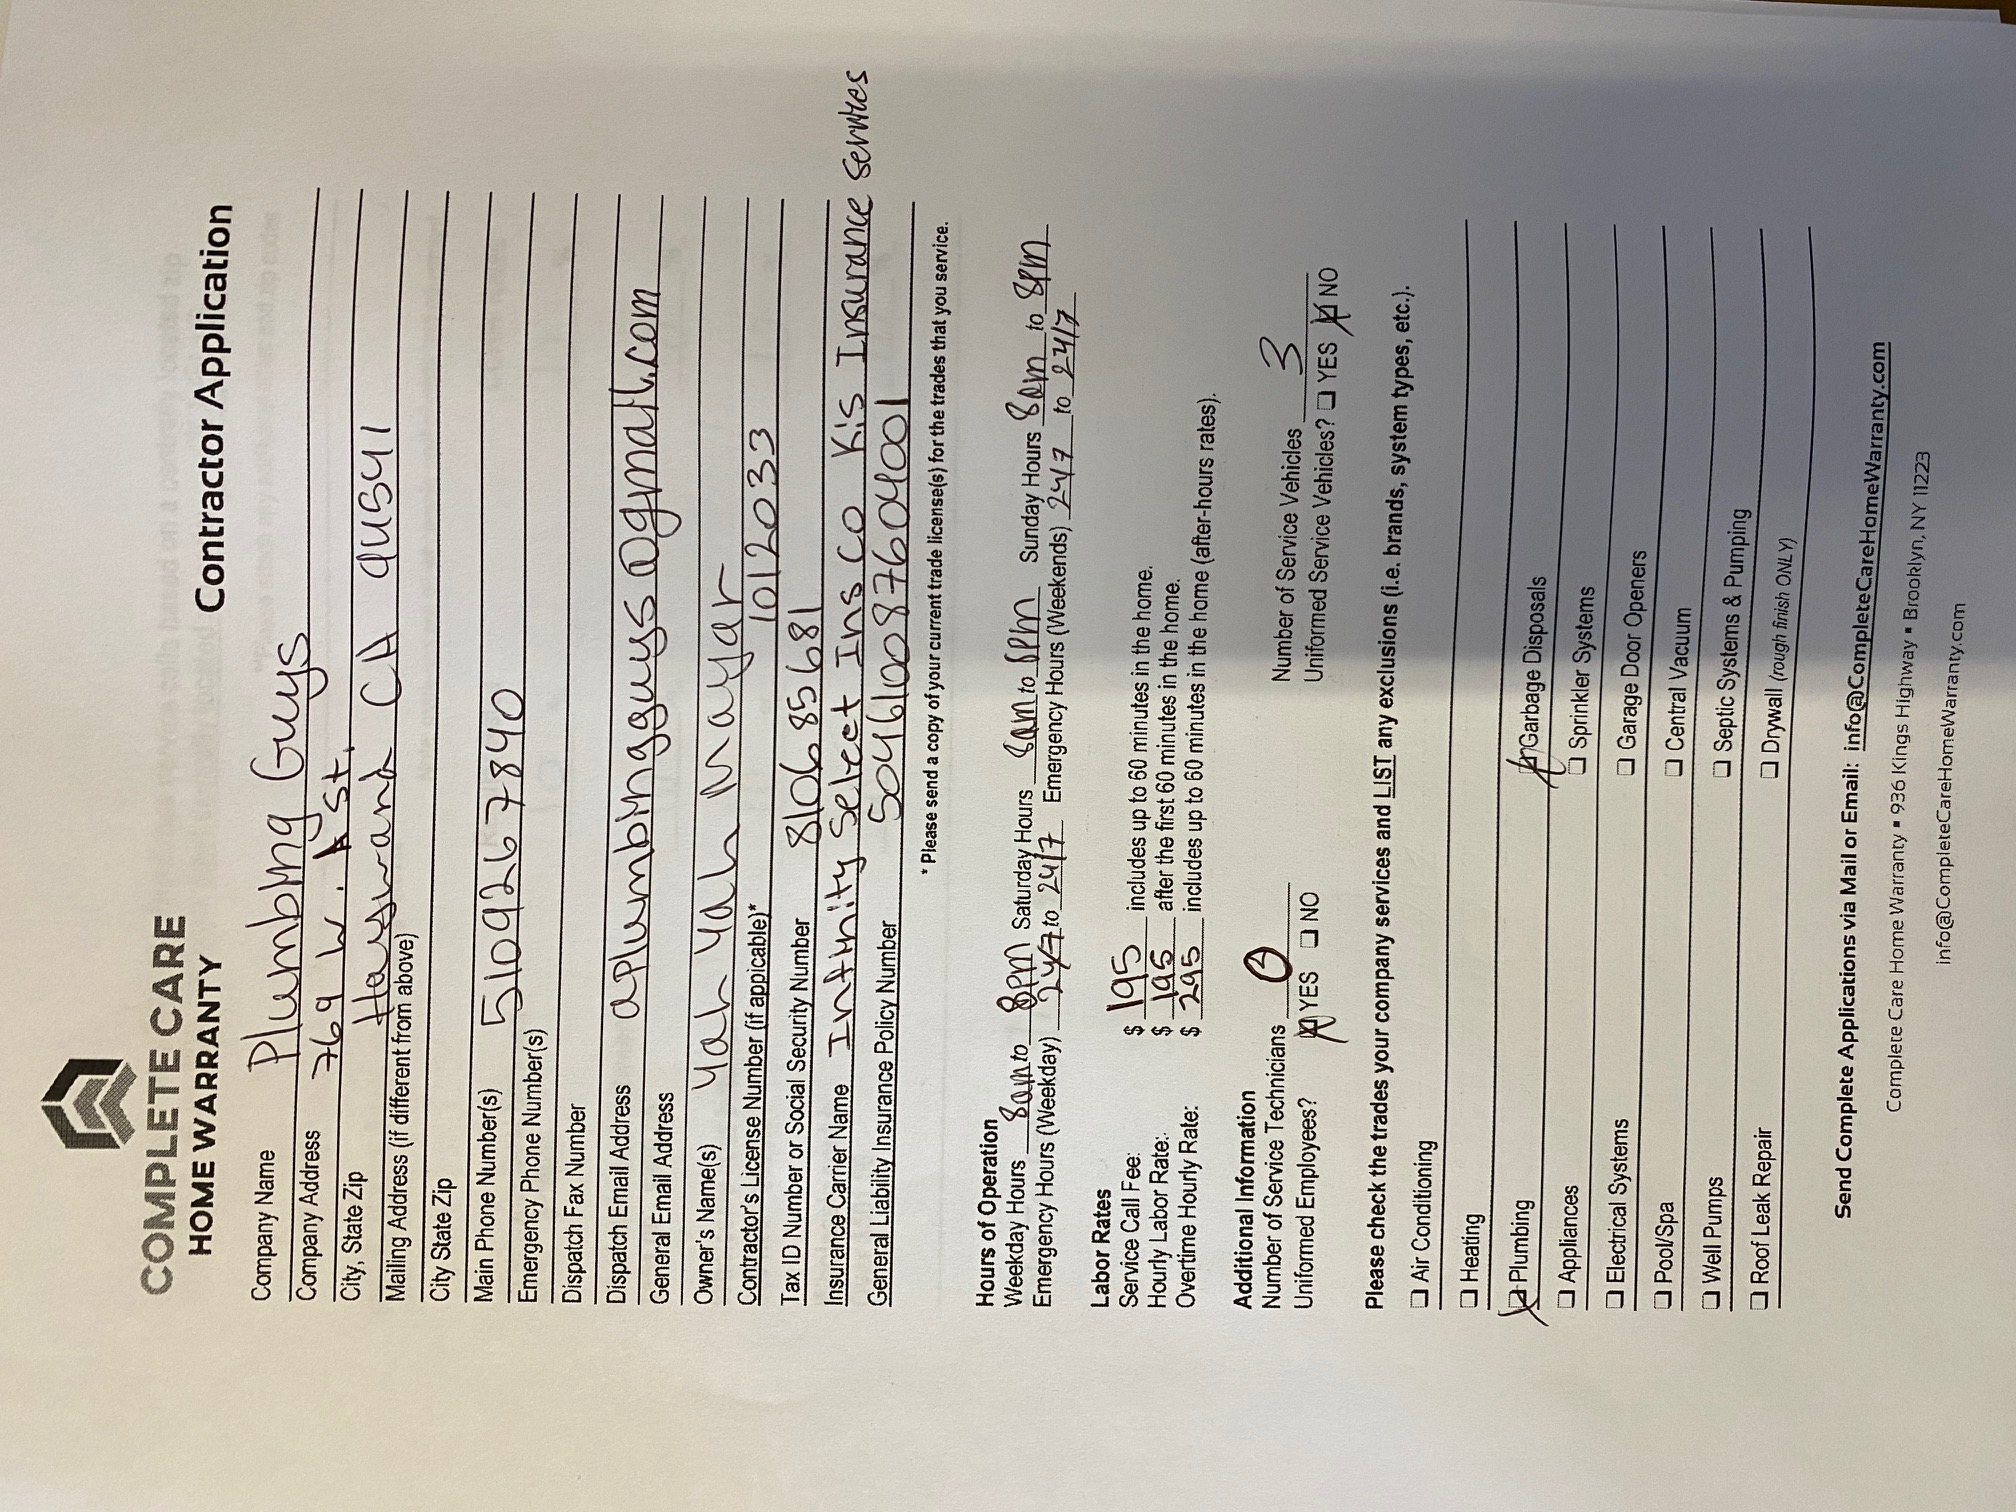 COMPLETE CARE
HOME WARRANTY
Contractor Application
Company Name Plumbing Guys
Company Address 769 W. A St.
City, State Zip Hayward CA 94541
Mailing Address (if different from above)
City State Zip
Main Phone Number(s) 5109267840
Emergency Phone Number(s)
Dispatch Fax Number
Dispatch Email Address aplumbingguys@gmail.com
General Email Address
Owner's Name(s) Yah Yah Mayar
Contractor's License Number (if appicable)* 1012033
Tax ID Number or Social Security Number 810685681
Insurance Carrier Name Infinity Select Ins Co Kis Insurance services
General Liability Insurance Policy Number 504610087604001
* Please send a copy of your current trade license(s) for the trades that you service.
Hours of Operation
Weekday Hours 8am to 8pm Saturday Hours 8am to 8pm Sunday Hours 8am to 8pm
Emergency Hours (Weekday) 24/7 to 24/7 Emergency Hours (Weekends) 24/7 to 24/7
Labor Rates
Service Call Fee: $ 195 includes up to 60 minutes in the home.
Hourly Labor Rate: $ 195 after the first 60 minutes in the home.
Overtime Hourly Rate: $ 295 includes up to 60 minutes in the home (after-hours rates).
Additional Information
Number of Service Technicians Number of Service Vehicles 3
Uniformed Employees? YES NO Uniformed Service Vehicles? YES NO
Please check the trades your company services and LIST any exclusions (i.e. brands, system types, etc.).
Air Conditioning
Heating
Plumbing Garbage Disposals
Appliances Sprinkler Systems
Electrical Systems Garage Door Openers
Pool/Spa Central Vacuum
Well Pumps Septic Systems & Pumping
Roof Leak Repair Drywall (rough finish ONLY)
Send Complete Applications via Mail or Email: info@CompleteCareHomeWarranty.com
Complete Care Home Warranty ▪ 936 Kings Highway ▪ Brooklyn, NY 11223
info@CompleteCareHomeWarranty.com